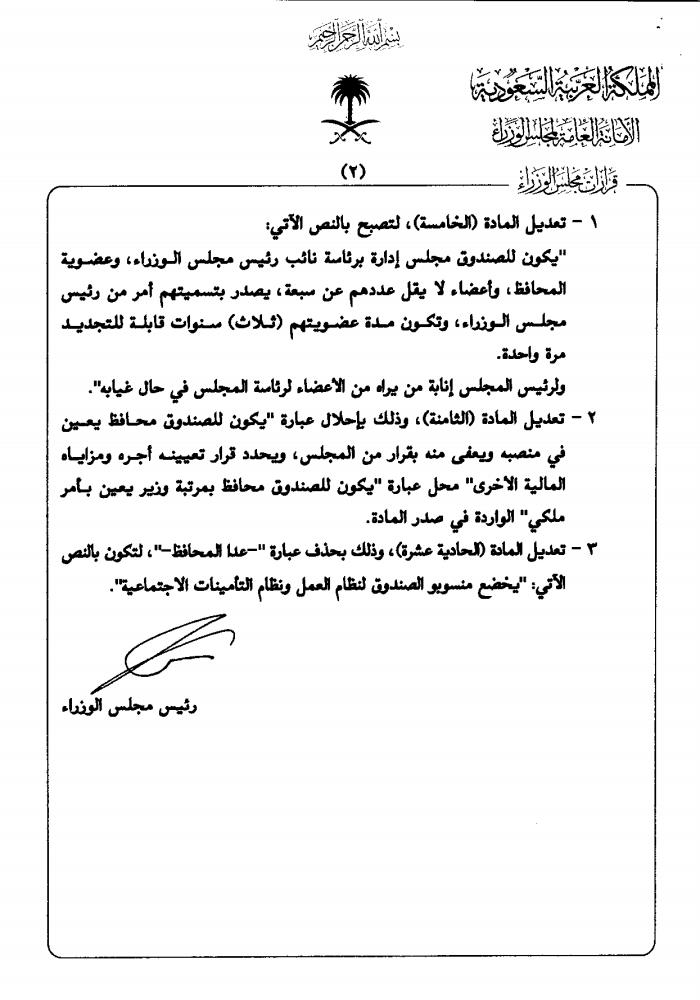 بسم الله الرحمن الرحيم
المملكة العربية السعودية
الأمانة العامة لمجلس الوزراء
(٢)
قرارات مجلس الوزراء
١ - تعديل المادة (الخامسة)، لتصبح بالنص الآتي:
"يكون للصندوق مجلس إدارة برئاسة نائب رئيس مجلس الوزراء، وعضوية
المحافظ، وأعضاء لا يقل عددهم عن سبعة، يصدر بتسميتهم أمر من رئيس
مجلس الوزراء، وتكون مدة عضويتهم (ثلاث) سنوات قابلة للتجديد
مرة واحدة.
ولرئيس المجلس إنابة من يراه من الأعضاء لرئاسة المجلس في حال غيابه".
٢ - تعديل المادة (الثامنة)، وذلك بإحلال عبارة "يكون للصندوق محافظ يعين
في منصبه ويعفى منه بقرار من المجلس، ويحدد قرار تعيينه أجره ومزاياه
المالية الأخرى" محل عبارة "يكون للصندوق محافظ بمرتبة وزير يعين بأمر
ملكي" الواردة في صدر المادة.
٣ - تعديل المادة (الحادية عشرة)، وذلك بحذف عبارة "-عدا المحافظ-"، لتكون بالنص
الآتي: "يخضع منسوبو الصندوق لنظام العمل ونظام التأمينات الاجتماعية".
رئيس مجلس الوزراء